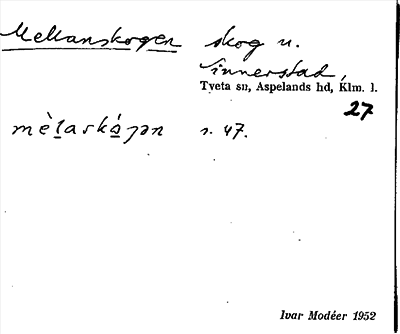 Mellanskogen skog u.
Sinnerstad,
Tveta sn, Aspelands hd, Klm. l.
27
mèlaskágən s. 47.
Ivar Modéer 1952